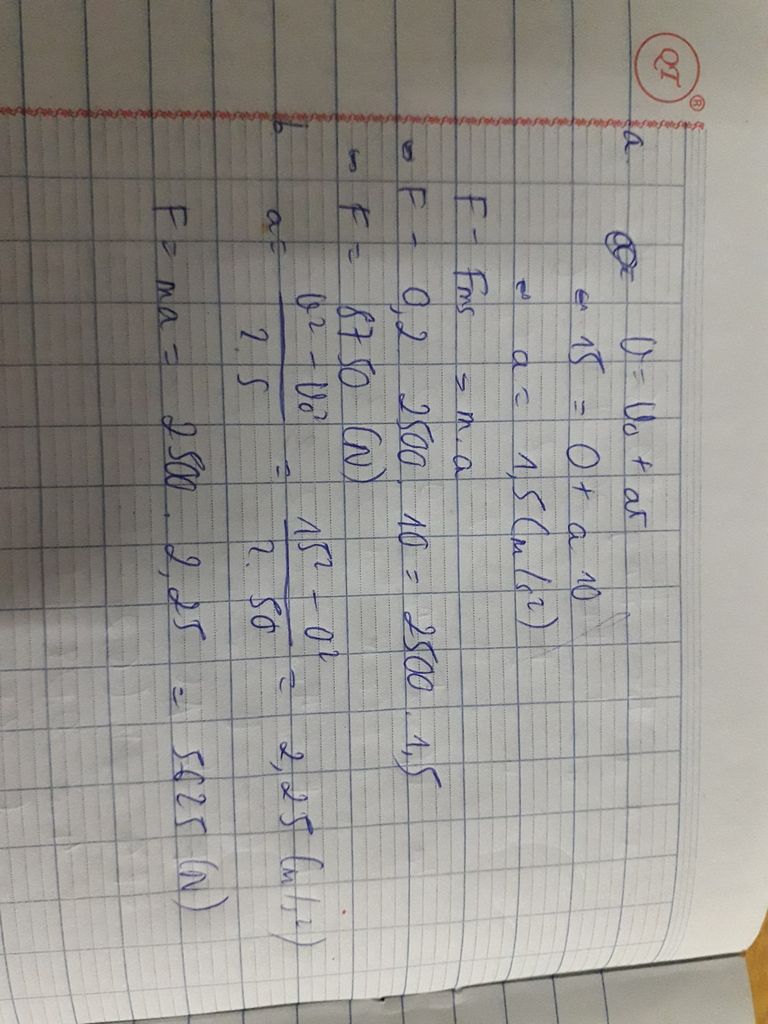 QT ®
a V = V₀ + at
⇔ 15 = 0 + a 10
⇔ a = 1,5 (m/s²)
F - Fms = m.a
⇔ F - 0,2 2500. 10 = 2500 . 1,5
⇔ F = 8750 (N)
b a = (V² - V₀²) / (2.S) = (15² - 0²) / (2.50) = 2,25 (m/s²)
F = ma = 2500 . 2,25 = 5625 (N)